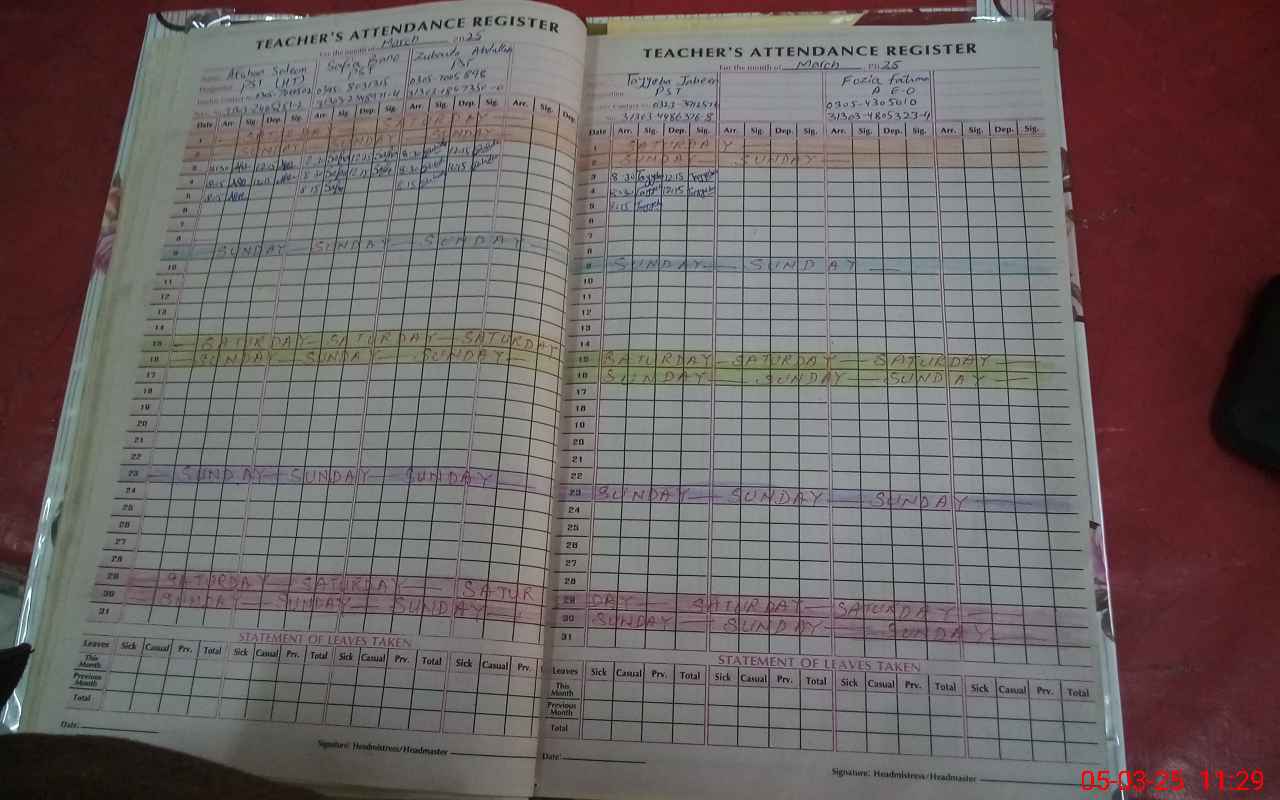 TEACHER'S ATTENDANCE REGISTER
For the month of March 2025
Safia Bano
PST
PST (HT)
PST
Date Arr. Sig. Dep. Sig. Arr. Sig. Dep. Sig. Arr. Sig. Dep. Sig. Arr. Sig. Dep.
1 SATURDAY SATURDAY
2 SUNDAY SUNDAY SUNDAY
3
4
5
6
7
8
9 SUNDAY SUNDAY SUNDAY
10
11
12
13
14
15 SATURDAY SATURDAY SATURDAY
16 SUNDAY SUNDAY SUNDAY
17
18
19
20
21
22
23 SUNDAY SUNDAY SUNDAY
24
25
26
27
28
29 SATURDAY SATURDAY SATUR
30 SUNDAY SUNDAY SUNDAY
31
STATEMENT OF LEAVES TAKEN
Leaves Sick Casual Prv. Total Sick Casual Prv. Total Sick Casual Prv. Total Sick Casual Prv.
This Month
Previous Month
Total
Date:
Signature: Headmistress/Headmaster
TEACHER'S ATTENDANCE REGISTER
For the month of March 2025
Tayyeba Jabeen Fozia fatima
PST A E-O
0305-4305010
31303-4486376-8 31303-4805323-4
Date Arr. Sig. Dep. Sig. Arr. Sig. Dep. Sig. Arr. Sig. Dep. Sig. Arr. Sig. Dep. Sig.
1 SATURDAY
2 SUNDAY SUNDAY
3 8:30 12:15
4 8:30 12:15
5 8:15
6
7
8
9 SUNDAY SUNDAY
10
11
12
13
14
15 SATURDAY SATURDAY SATURDAY
16 SUNDAY SUNDAY SUNDAY
17
18
19
20
21
22
23 SUNDAY SUNDAY SUNDAY
24
25
26
27
28
29 DAY SATURDAY SATURDAY
30 SUNDAY SUNDAY SUNDAY
31
STATEMENT OF LEAVES TAKEN
Leaves Sick Casual Prv. Total Sick Casual Prv. Total Sick Casual Prv. Total Sick Casual Prv. Total
This Month
Previous Month
Total
Date:
Signature: Headmistress/Headmaster
05-03-25 11:29